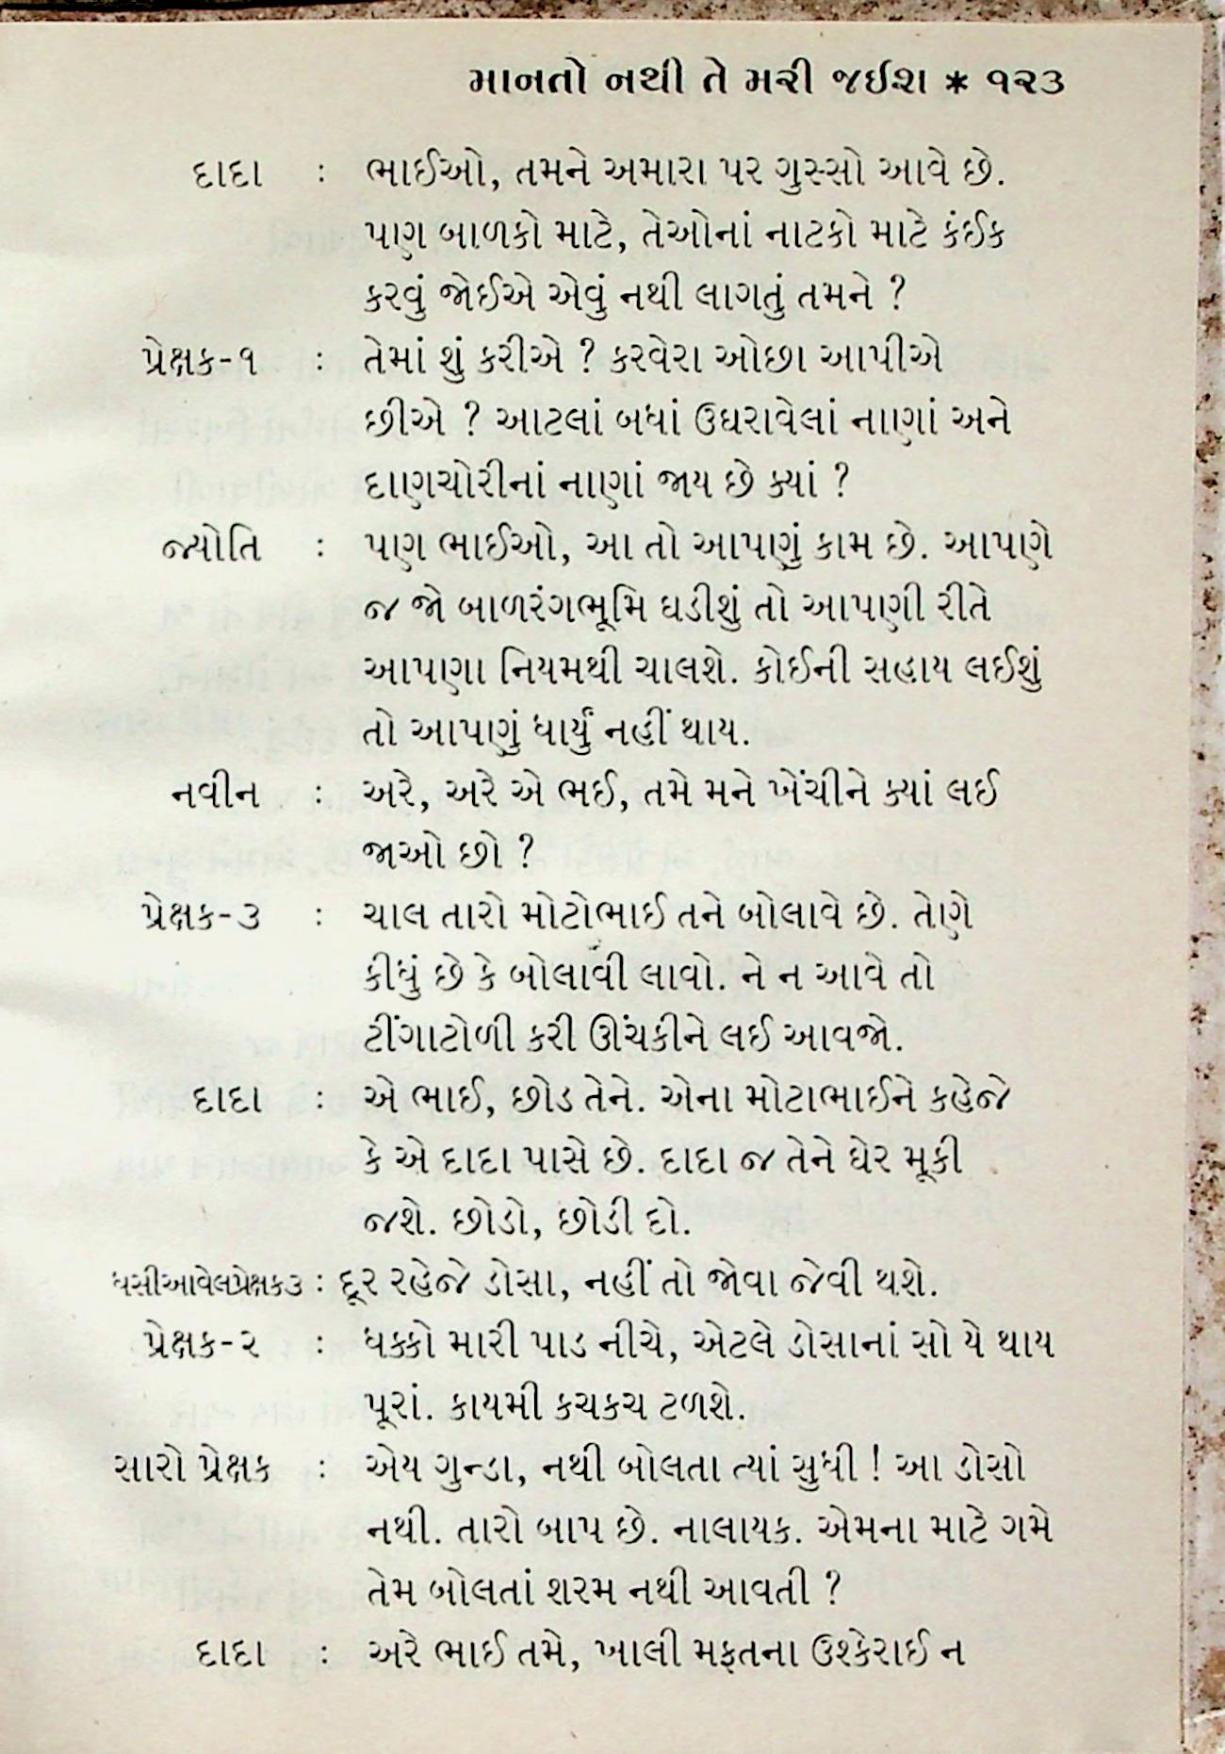 માનતો નથી તે મરી જઈશ * ૧૨૩
દાદા : ભાઈઓ, તમને અમારા પર ગુસ્સો આવે છે.
પણ બાળકો માટે, તેઓનાં નાટકો માટે કંઈક
કરવું જોઈએ એવું નથી લાગતું તમને ?
પ્રેક્ષક-૧ : તેમાં શું કરીએ ? કરવેરા ઓછા આપીએ
છીએ ? આટલાં બધાં ઉઘરાવેલાં નાણાં અને
દાણચોરીનાં નાણાં જાય છે ક્યાં ?
જ્યોતિ : પણ ભાઈઓ, આ તો આપણું કામ છે. આપણે
જ જો બાળરંગભૂમિ ઘડીશું તો આપણી રીતે
આપણા નિયમથી ચાલશે. કોઈની સહાય લઈશું
તો આપણું ધાર્યું નહીં થાય.
નવીન : અરે, અરે એ ભઈ, તમે મને ખેંચીને ક્યાં લઈ
જાઓ છો ?
પ્રેક્ષક-૩ : ચાલ તારો મોટોભાઈ તને બોલાવે છે. તેણે
કીધું છે કે બોલાવી લાવો. ને ન આવે તો
ટીંગાટોળી કરી ઊંચકીને લઈ આવજો.
દાદા : એ ભાઈ, છોડ તેને. એના મોટાભાઈને કહેજે
કે એ દાદા પાસે છે. દાદા જ તેને ઘેર મૂકી
જશે. છોડો, છોડી દો.
ધસીઆવેલપ્રેક્ષક૩ : દૂર રહેજે ડોસા, નહીં તો જોવા જેવી થશે.
પ્રેક્ષક-૨ : ધક્કો મારી પાડ નીચે, એટલે ડોસાનાં સો યે થાય
પૂરાં. કાયમી કચકચ ટળશે.
સારો પ્રેક્ષક : એય ગુન્ડા, નથી બોલતા ત્યાં સુધી ! આ ડોસો
નથી. તારો બાપ છે. નાલાયક. એમના માટે ગમે
તેમ બોલતાં શરમ નથી આવતી ?
દાદા : અરે ભાઈ તમે, ખાલી મફતના ઉશ્કેરાઈ ન